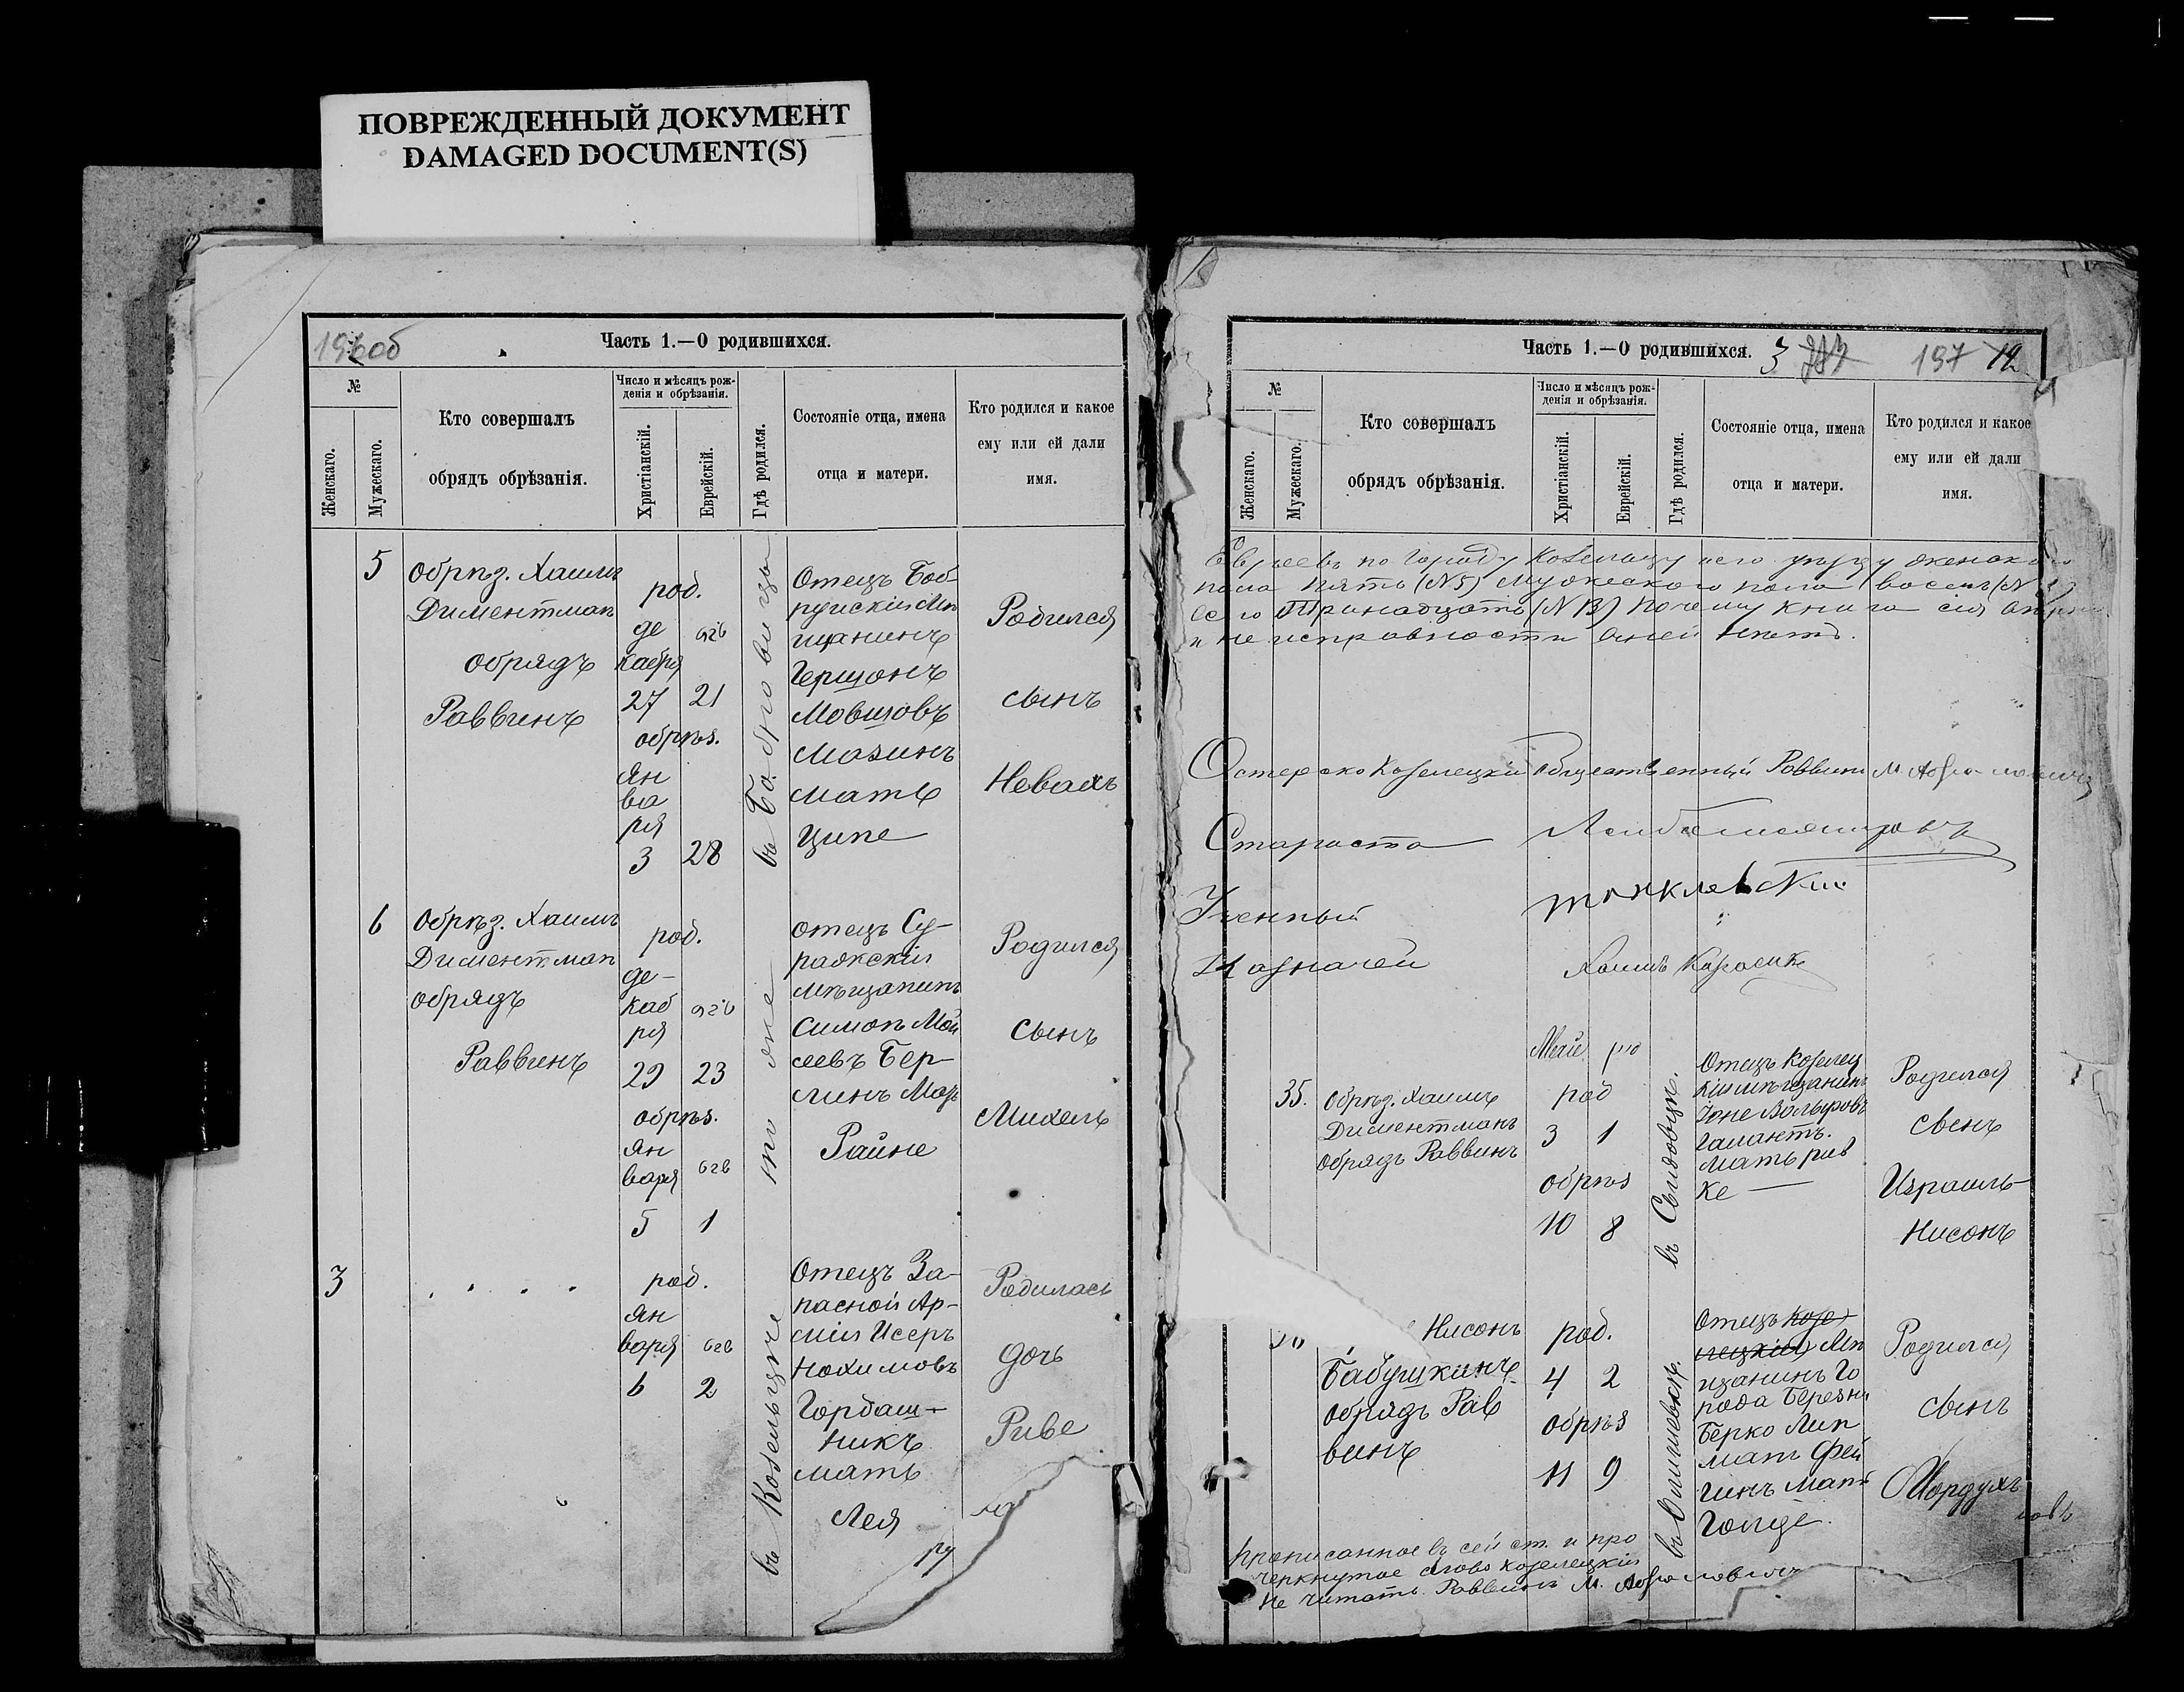 ПОВРЕЖДЕННЫЙ ДОКУМЕНТ
DAMAGED DOCUMENT(S)
196об
Часть 1.—О родившихся.
№
Женскаго.
Мужескаго.
Кто совершалъ
обрядъ обрѣзанія.
Число и мѣсяцъ рож-
денія и обрѣзанія.
Христіанскій.
Еврейскій.
Гдѣ родился.
Состояніе отца, имена
отца и матери.
Кто родился и какое
ему или ей дали
имя.
5
Обрѣз. Хаимъ
Диментман
обрядъ
Раввинъ
род.
де
кабря
27 21
обрѣз.
Ян
ва
ря
3 28
Отецъ Боб-
руискій Мѣ
щанинъ
Гершонъ
Мовшовъ
Мазинъ
мать
Ципе
Родился
сынъ
Невахъ
6
Обрѣз. Хаимъ
Диментман
обрядъ
Раввинъ
род.
де-
каб
ря
29 23
обрѣз.
ян
варя
5 1
то же
отецъ Су-
ражскій
мѣщанинъ
Симон Мой
сеевъ Бер-
линъ Мать
Райне
Родился
сынъ
Михель
3
род.
ян
варя
6 2
въ Козельцѣ
Отецъ За-
пасной Ар-
міи Исеръ
Нохимовъ
Гордаш-
никъ
мать
Лея
Родилась
дочь
Риве
Часть 1.—О родившихся.
3 197 12
№
Женскаго.
Мужескаго.
Кто совершалъ
обрядъ обрѣзанія.
Число и мѣсяцъ рож-
денія и обрѣзанія.
Христіанскій.
Еврейскій.
Гдѣ родился.
Состояніе отца, имена
отца и матери.
Кто родился и какое
ему или ей дали
имя.
Евреевъ по городу Козельцу и его уезду женска
пола пять (№5) мужескаго пола восемь (№
всего Тринадцать (№13) почему книга сія
и не исправности в ней нѣтъ.
Остерско Козелецкій Общественный Раввинъ М
Староста
Ученный
Казначей Хаимъ
35.
Обрѣз. Хаимъ
Диментманъ
обрядъ Раввинъ
Май
род
3 1
обрѣз
10 8
Отецъ Козелец
кій мѣщанинъ
Іоне Вольфовъ
Галантъ.
Мать рив
ке —
Родился
сынъ
Израиль
Нисонъ
Нисонъ
Бабушкинъ
обрядъ Рав
винъ
род.
4 2
обрѣз
11 9
Отецъ Козе
лецкій Мѣ
щанинъ Го
рода Березни
Берко Лип
ман Фей
гинъ Мать
Голде.
Родился
сынъ
Мордухъ
Прописанное въ сей ст. и про
черкнутое слово Козелецкій
не читать. Раввинъ М.